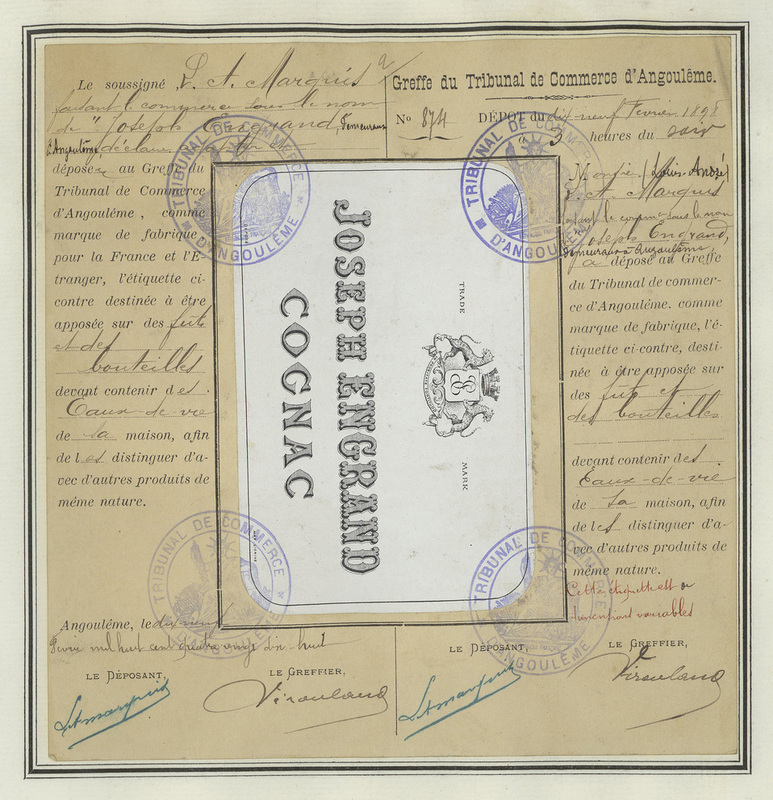 Le soussigné, L. A. Marquis
faisant le commerce sous le nom
de "Joseph Engrand, demeurant
à Angoulême, déclare
déposer au Greffe du
Tribunal de Commerce
d'Angoulême, comme
marque de fabrique,
pour la France et l'É-
tranger, l'étiquette ci-
contre destinée à être
apposée sur des fûts
et des
bouteilles
devant contenir des
Eaux-de-vie
de sa maison, afin
de les distinguer d'a-
vec d'autres produits de
même nature.
Angoulême, le dix neuf
Février mil huit cent quatre vingt dix huit
LE DÉPOSANT,
LE GREFFIER,
LAmarquis
Viroulaud
Greffe du Tribunal de Commerce d'Angoulême.
No 874 DÉPOT du dix-neuf Février 1898
à 3 heures du soir
Monsieur Louis-André
L. A. Marquis
faisant le commerce sous le nom
Joseph Engrand,
demeurant à Angoulême,
a déposé au Greffe
du Tribunal de commer-
ce d'Angoulême. comme
marque de fabrique, l'é-
tiquette ci-contre, desti-
née à être apposée sur
des fûts et
des bouteilles
devant contenir des
Eaux-de-vie
de sa maison, afin
de les distinguer d'a-
vec d'autres produits de
même nature.
Cette étiquette est de
dimensions variables
LE DÉPOSANT,
LE GREFFIER,
LAmarquis
Viroulaud
TRADE MARK
JOSEPH ENGRAND
COGNAC
TRIBUNAL DE COMMERCE D'ANGOULÊME
TRIBUNAL DE COMMERCE D'ANGOULÊME
TRIBUNAL DE COMMERCE D'ANGOULÊME
TRIBUNAL DE COMMERCE D'ANGOULÊME